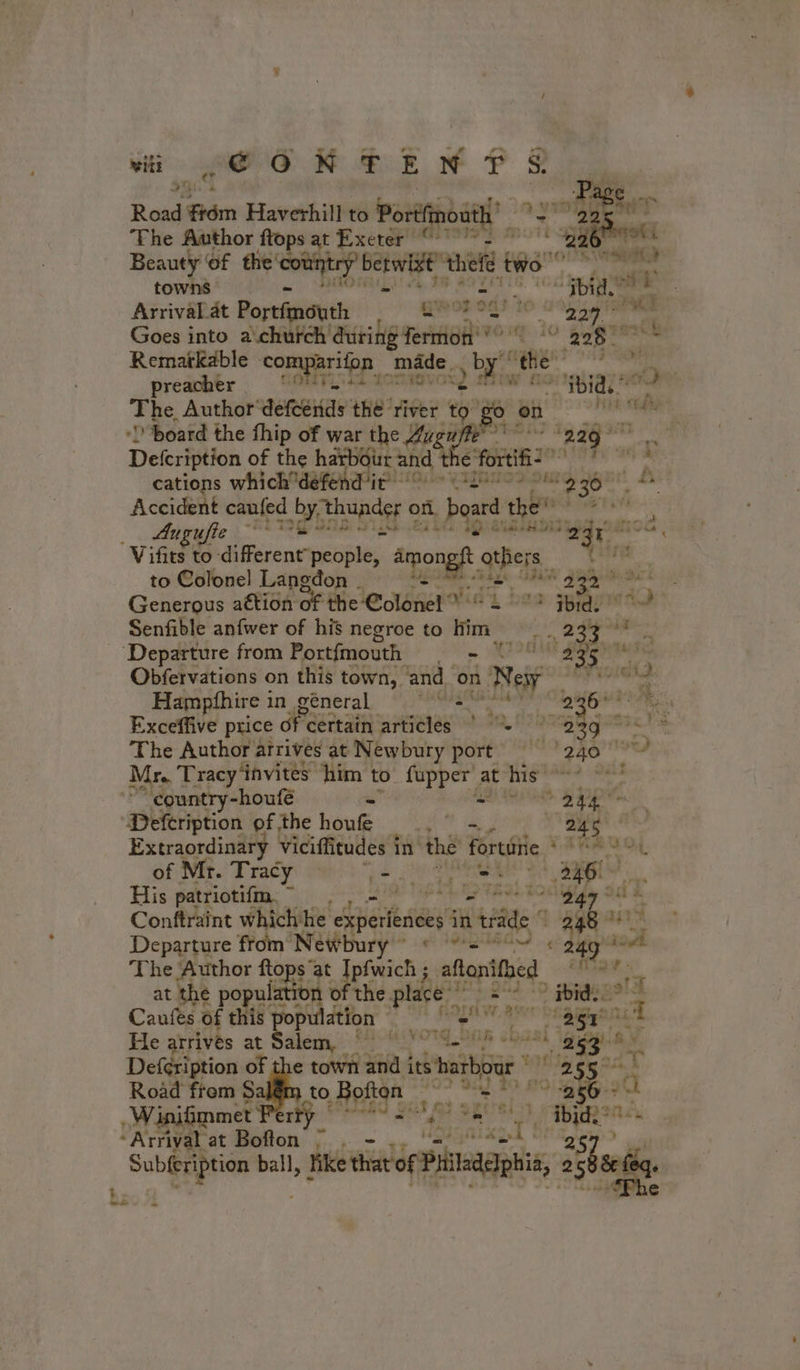 viii CONTENTS
Page
Road from Haverhill to Portſmouth - 225
The Author ſtops at Exeter - 226
Beauty of the country betwixt theſe two
towns - - - ibid.
Arrival at Portſmouth - 227
Goes into a church during ſermon 228
Remarkable compariſon made by the
preacher - - ibid.
The Author deſcends the river to go on
board the ſhip of war the Auguſte 229
Deſcription of the harbour and the fortifi-
cations which defend it - 230
Accident cauſed by thunder on board the
Auguſte - - - 231
Viſits to different people, amongſt others
to Colonel Langdon - - 232
Generous action of the Colonel - ibid.
Senſible anſwer of his negroe to him 233
Departure from Portſmouth - 235
Obſervations on this town, and on New
Hampſhire in general - 236
Exceſſive price of certain articles - 239
The Author arrives at Newbury port 240
Mr. Tracy invites him to ſupper at his
country-houſe - - 244
Deſcription of the houſe - 245
Extraordinary viciſſitudes in the fortune
of Mr. Tracy - - 246
His patriotiſm - - 247
Conſtraint which he experiences in trade 248
Departure from Newbury - 249
The Author ſtops at Ipſwich; aſtoniſhed
at the population of the place - ibid.
Cauſes of this population - 251
He arrives at Salem, - 253
Deſcription of the town and its harbour 255
Road from Salem to Boſton - 256
Winiſimmet Ferry - - ibid.
Arrival at Boſton - - - 257
Subſcription ball, like that of Philadelphia, 258 & ſeq.
The